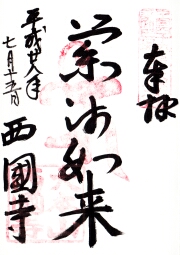 奉拝
薬師如来
平成廿八年
七月
西國寺